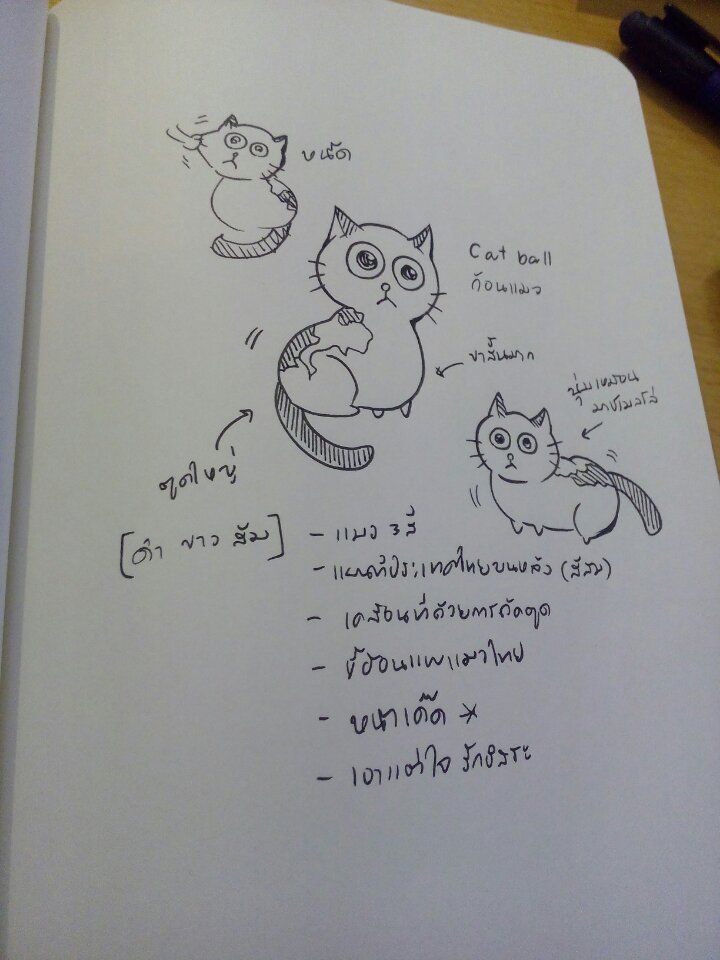 หนืด
Cat ball
ก้อนแมว
ขาสั้นมาก
นุ่มเหมือน
มาชเมลโล่
ตูดใหญ่
[ดำ ขาว ส้ม]
- แมว 3 สี
- แผนที่ประเทศไทยบนหลัง (สีส้ม)
- เคลื่อนที่ด้วยการถัดตูด
- ขี้อ้อนแบบแมวไทย
- หน้าเด๊ด *
- เอาแต่ใจ รักอิสระ